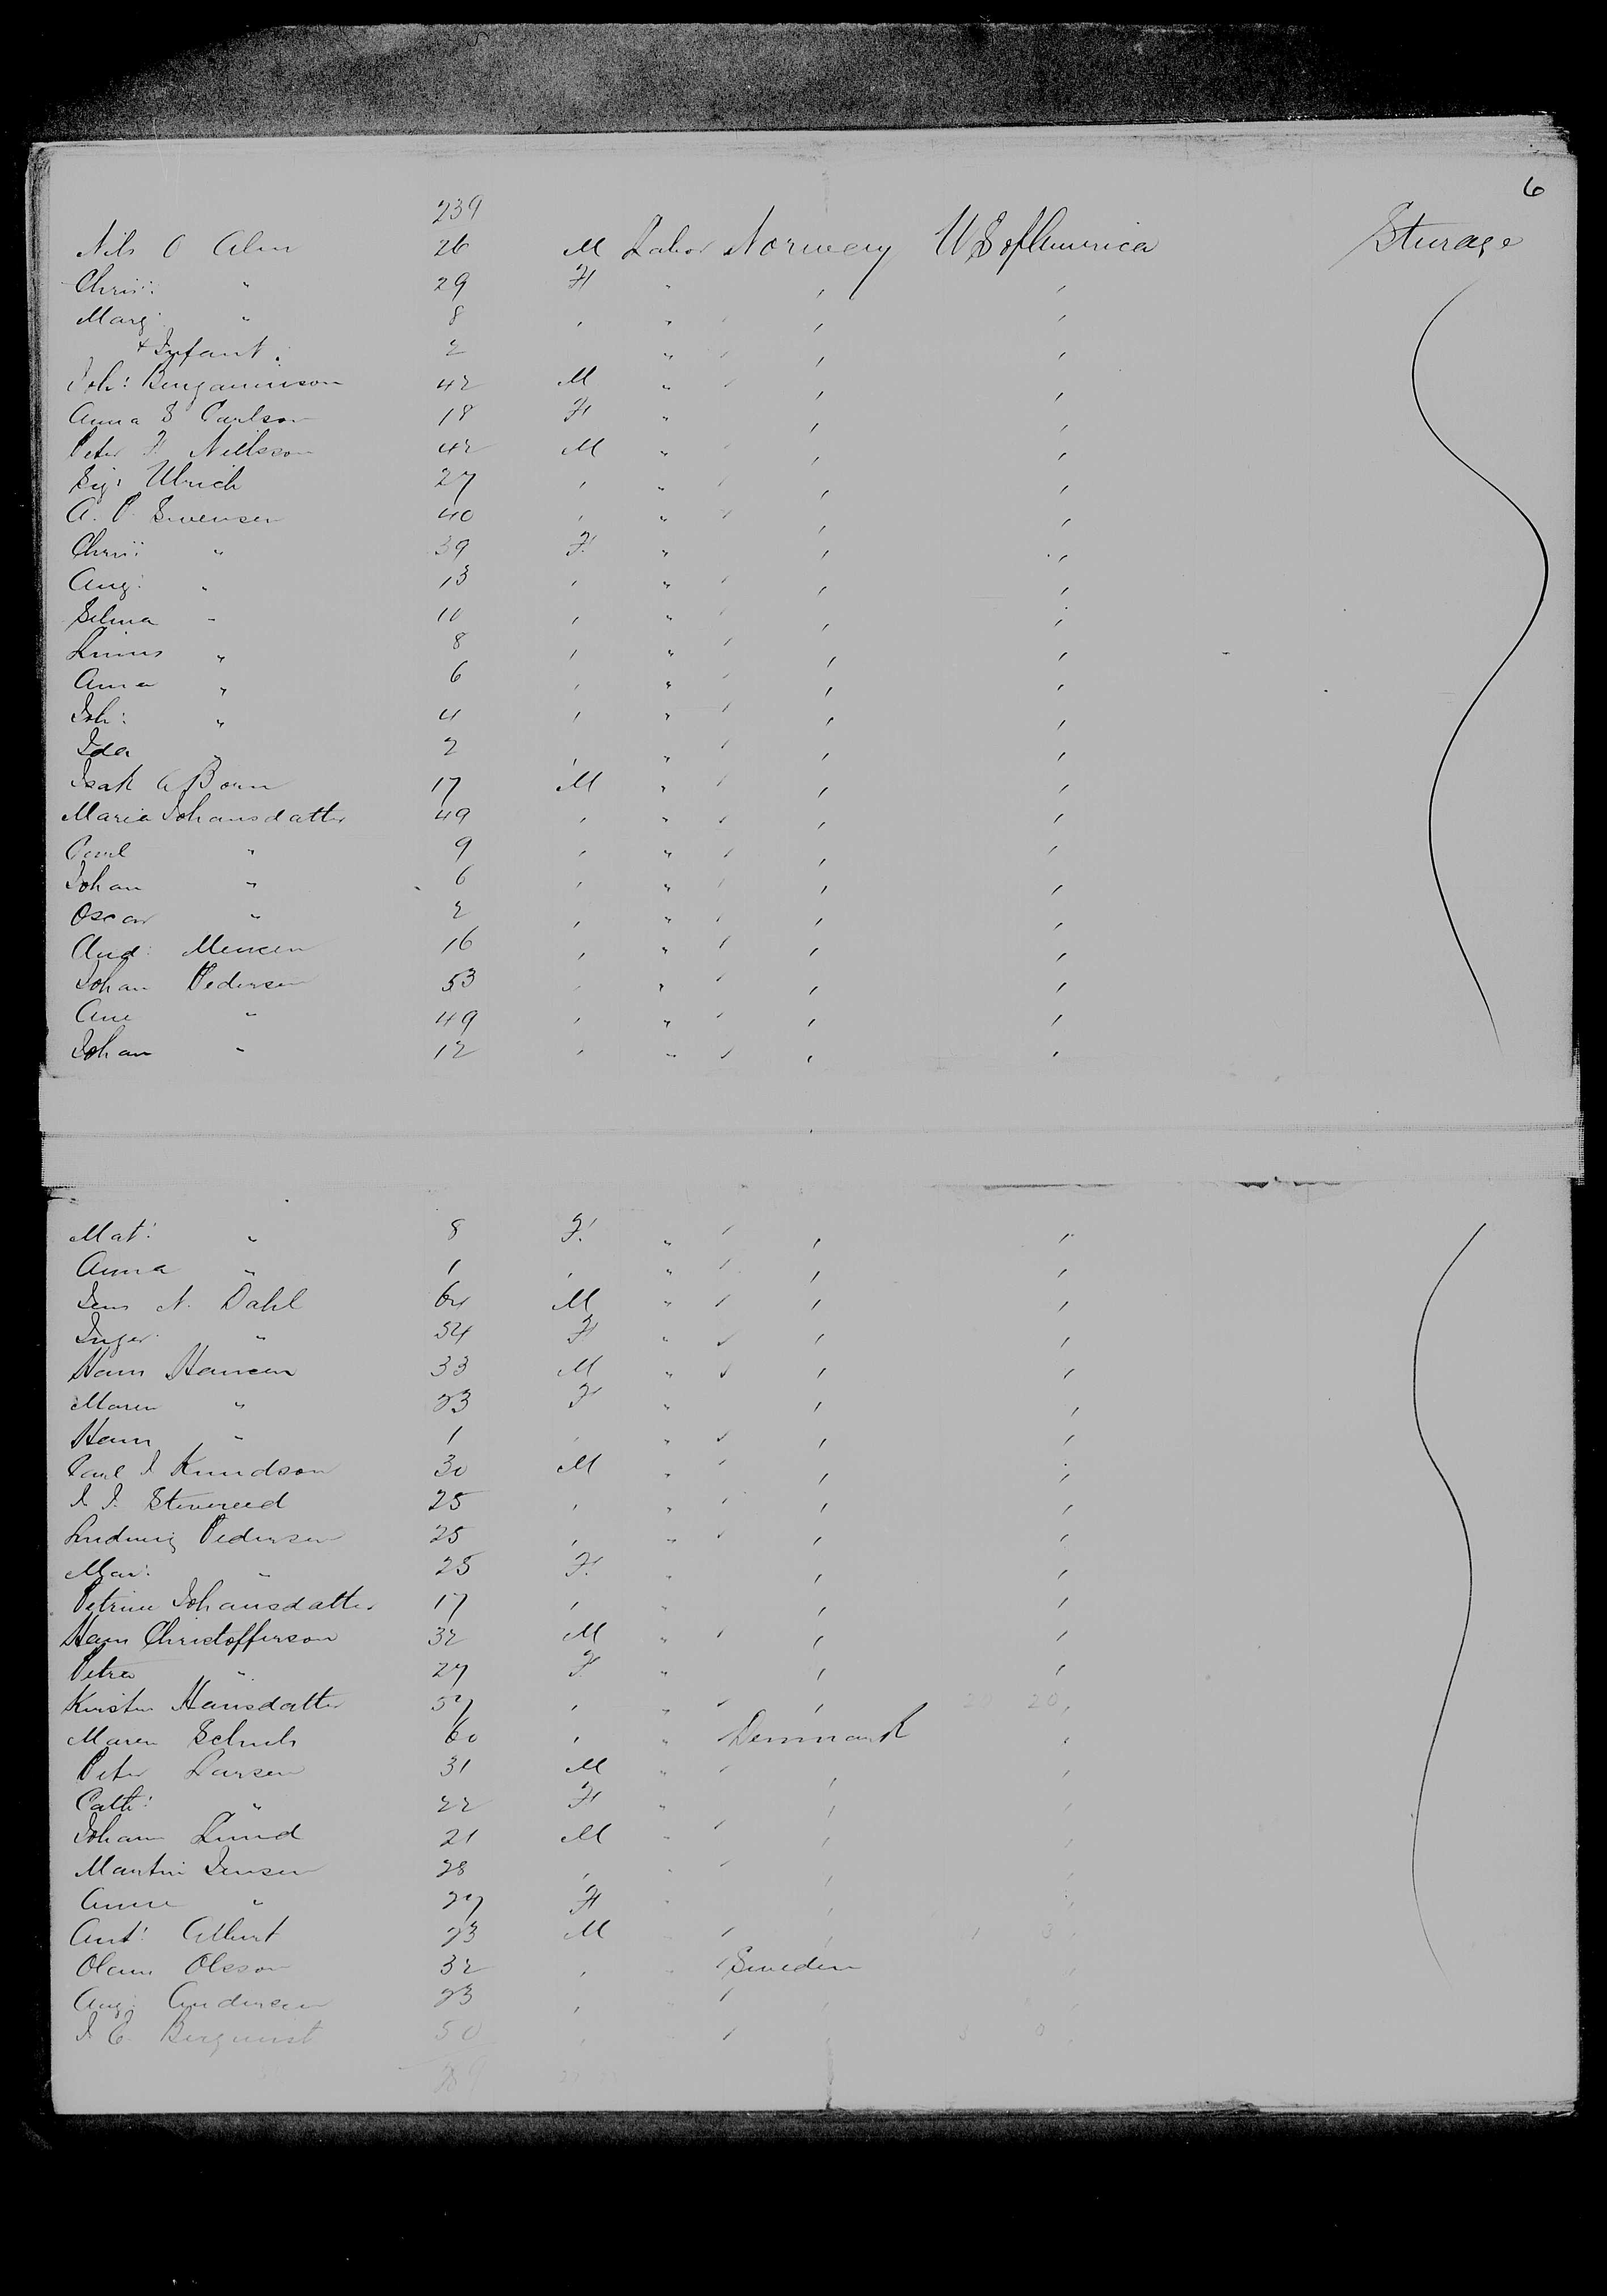 6
239
Nils O Alm 26 M Labor Norway U S of America Sturage
Chris: " 29 F " , ,
Marg: " 8 , " , ,
+ Infant: 2 " , ,
Joh: Bengaminson 42 M " , ,
Anna S Carlson 18 F " , ,
Peter F Nillsson 42 M " , ,
Sig: Ulrich 27 , " , ,
A. P. Swensen 40 , " , ,
Chris: " 39 F. " , ,
Aug: " 13 , " , ,
Selma " 10 , " , ,
Linus " 8 , " , ,
Anna " 6 , " , ,
Joh: " 4 , " , ,
Ida " 2 , " , ,
Isak A 17 M " , ,
Maria Johansdatter 49 , " , ,
Carl " 9 , " , ,
Johan " 6 , " , ,
Oscar " 2 , " , ,
And: 16 , " , ,
Johan Pedersen 53 , " , ,
Ane " 49 , " , ,
Johan " 12 , " , ,
Mat: " 8 F. " , ,
Anna " 1 , " , ,
Jens N. Dahl 64 M " , ,
Inger " 54 F " , ,
Hans Hansen 33 M " , ,
Maren " 23 F " , ,
Hans " 1 , " , ,
Paul J Knudson 30 M " , ,
J J. 25 , " , ,
Ludwig Pedersen 25 , " , ,
Mar: " 25 F. " , ,
Petrine Johansdatter 17 , " , ,
Hans Christofferson 32 M " , ,
Petra " 27 F " , ,
Kirsten Hansdatter 57 , " , 20 20 ,
Maren 60 , " Denmark ,
Peter Larsen 31 M " , ,
Cath: " 22 F " , ,
Johan Lund 21 M " , ,
Martin Jensen 28 , " , ,
Anne " 27 F " , ,
Ant: Albert 23 M " , ,
Olaus Olsson 32 , " Sweden ,
Aug: Andersen 23 , " , ,
J E. Bergquist 50 , " , ,